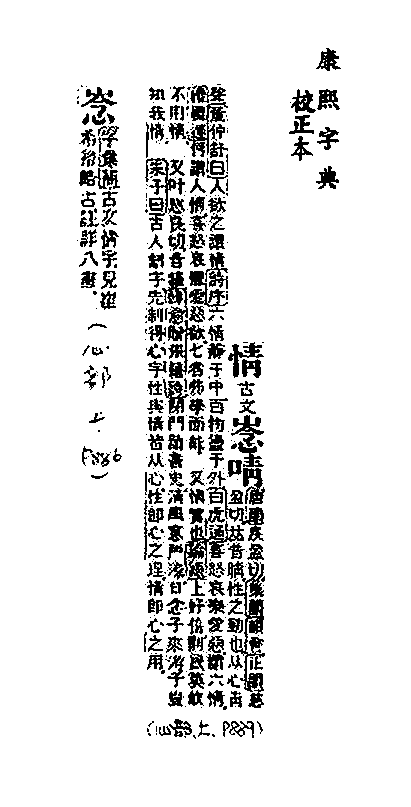 康熙字典
校正本
情 古文 唐韻疾盈切集韻韻會正韻慈
盈切𠀤音晴性之動也从心靑
聲董仲舒曰人欲之謂情詩序六情靜于中百物盪于外白虎通喜怒哀樂愛惡謂六情
禮禮運何謂人情喜怒哀懼愛惡欲七者弗學而能 又情實也論語上好信則民莫敢
不用情 又叶慈良切音 韓愈 閉門 史清風 涼日念子來游子豈
知我情 朱子曰古人制字先制得心字性與情皆从心性卽心之理情卽心之用。
字彙補古文情字見崔
希裕略古註詳八畫。(心部上P886)
(心部,上,P889)